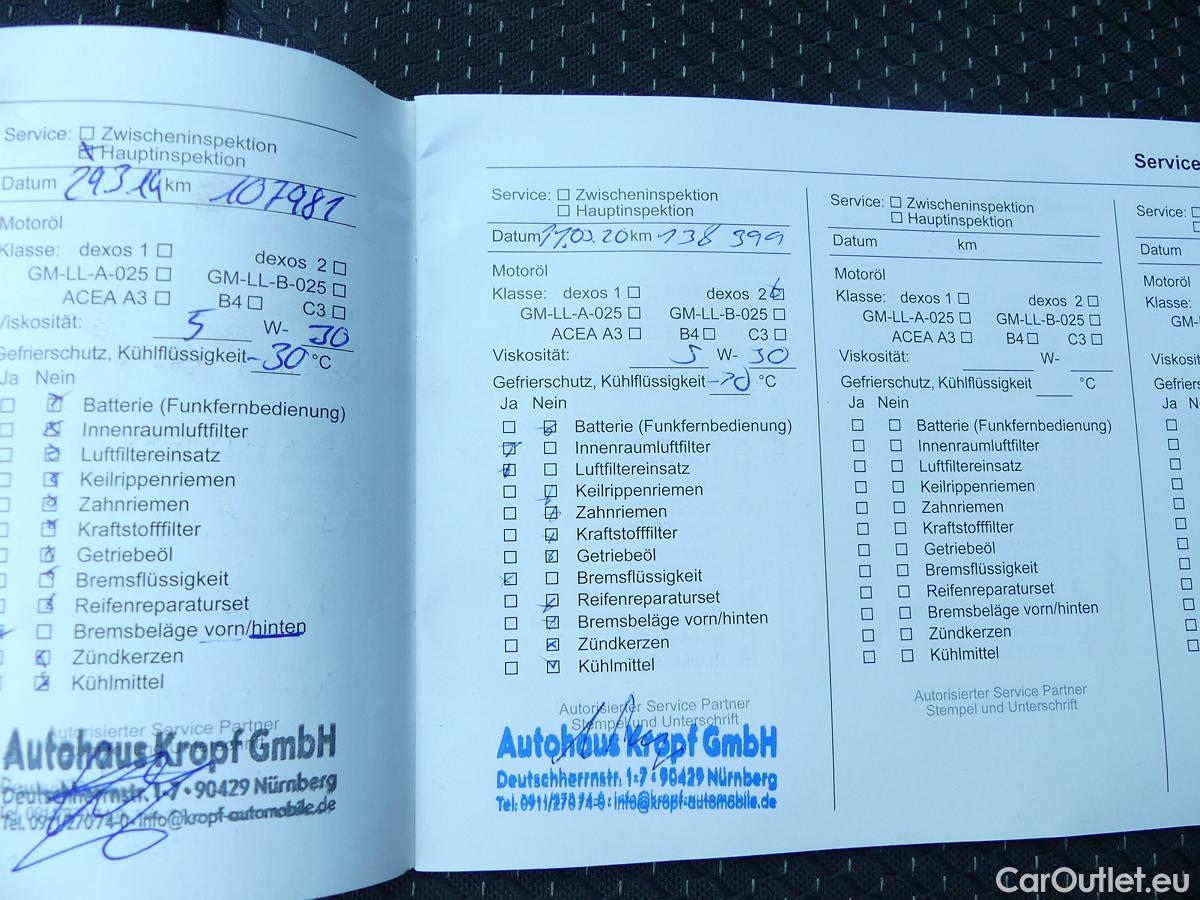 Service: Zwischeninspektion
Hauptinspektion
Datum 29.3.19 km 107981
Motoröl
Klasse: dexos 1 dexos 2
GM-LL-A-025 GM-LL-B-025
ACEA A3 B4 C3
Viskosität: 5 W- 30
Gefrierschutz, Kühlflüssigkeit -30 °C
Ja Nein
Batterie (Funkfernbedienung)
Innenraumluftfilter
Luftfiltereinsatz
Keilrippenriemen
Zahnriemen
Kraftstofffilter
Getriebeöl
Bremsflüssigkeit
Reifenreparaturset
Bremsbeläge vorn/hinten
Zündkerzen
Kühlmittel
Autorisierter Service Partner
Autohaus Kropf GmbH
Deutschherrnstr. 1-7 • 90429 Nürnberg
Tel. 0911/27074-0 • info@kropf-automobile.de
Service
Service: Zwischeninspektion
Hauptinspektion
Datum 11.03.20 km 138 399
Motoröl
Klasse: dexos 1 dexos 2
GM-LL-A-025 GM-LL-B-025
ACEA A3 B4 C3
Viskosität: 5 W- 30
Gefrierschutz, Kühlflüssigkeit °C
Ja Nein
Batterie (Funkfernbedienung)
Innenraumluftfilter
Luftfiltereinsatz
Keilrippenriemen
Zahnriemen
Kraftstofffilter
Getriebeöl
Bremsflüssigkeit
Reifenreparaturset
Bremsbeläge vorn/hinten
Zündkerzen
Kühlmittel
Autorisierter Service Partner
Stempel und Unterschrift
Autohaus Kropf GmbH
Deutschherrnstr. 1-7 • 90429 Nürnberg
Tel. 0911/27074-0 • info@kropf-automobile.de
Service: Zwischeninspektion
Hauptinspektion
Datum km
Motoröl
Klasse: dexos 1 dexos 2
GM-LL-A-025 GM-LL-B-025
ACEA A3 B4 C3
Viskosität: W-
Gefrierschutz, Kühlflüssigkeit °C
Ja Nein
Batterie (Funkfernbedienung)
Innenraumluftfilter
Luftfiltereinsatz
Keilrippenriemen
Zahnriemen
Kraftstofffilter
Getriebeöl
Bremsflüssigkeit
Reifenreparaturset
Bremsbeläge vorn/hinten
Zündkerzen
Kühlmittel
Autorisierter Service Partner
Stempel und Unterschrift
Service:
Datum
Motoröl
Klasse:
GM-
Viskosit
Gefriers
Ja N
CarOutlet.eu